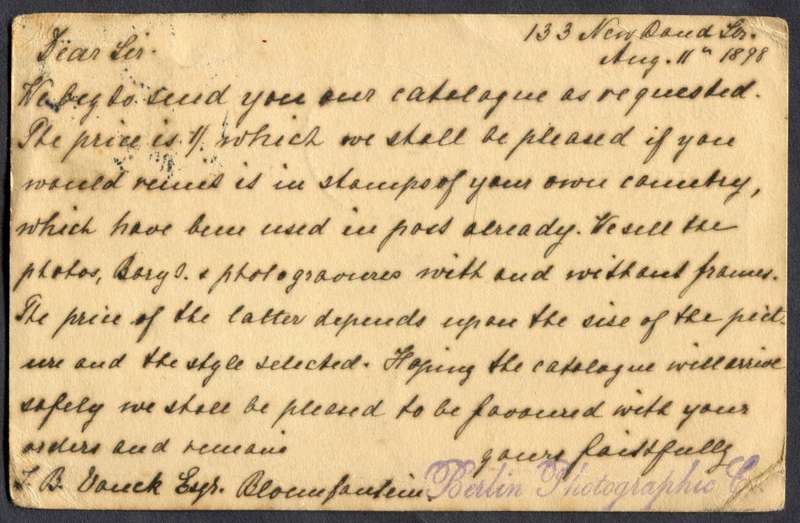 133 New Bond Str.
Aug. 11th 1898
Dear Sir.
We beg to send you our catalogue as requested.
The price is 1/ which we shall be pleased if you
would remit is in stamps of your own country,
which have been used in post already. We sell the
photos, & photogravures with and without frames.
The price of the latter depends upon the size of the pict-
ure and the style selected. Hoping the catalogue will arrive
safely we shall be pleased to be favoured with your
orders and remain
yours faithfully
B. Vanck Esqr. Bloemfontein.
Berlin Photographic C